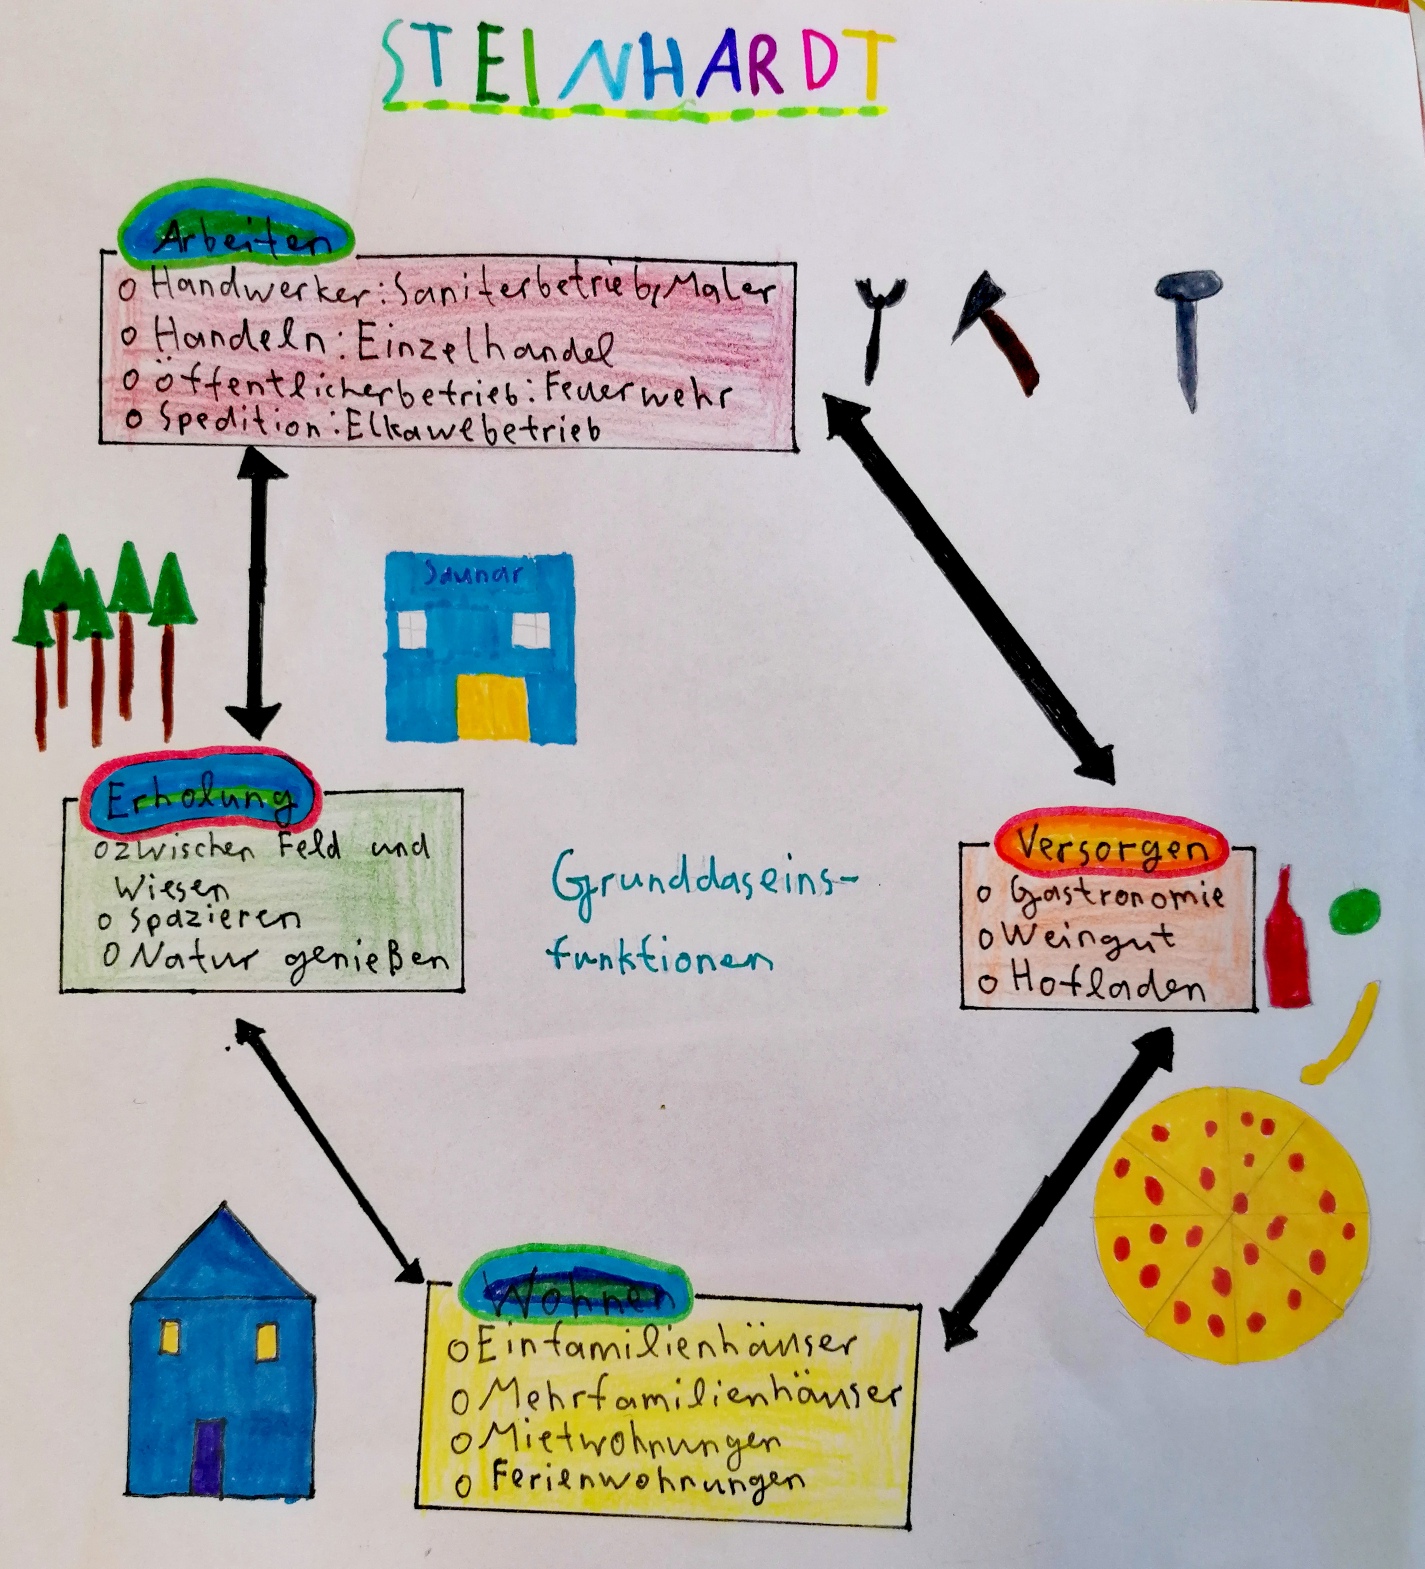 STEINHARDT
Arbeiten
o Handwerker: Saniterbetrieb, Maler
o Handeln: Einzelhandel
o öffentlicherbetrieb: Feuerwehr
o Spedition: Elkawebetrieb
Saunar
Erholung
o zwischen Feld und
Wiesen
o spazieren
o Natur genießen
Grunddaseins-
funktionen
Versorgen
o Gastronomie
o Weingut
o Hofladen
Wohnen
o Einfamilienhäuser
o Mehrfamilienhäuser
o Mietwohnungen
o Ferienwohnungen